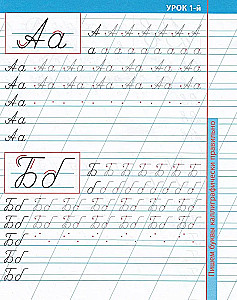 УРОК 1-й
Аа А А А А А А А
а а а а а а а а
Аа Аа Аа Аа Аа Аа
Аа Аа Аа Аа Аа Аа
Аа
Аа
Бб Б Б Б Б Б Б Б
б б б б б б б б
Бб Бб Бб Бб Бб Бб
Бб Бб Бб Бб Бб Бб
Бб
Бб
Бб
Пишем буквы каллиграфически правильно